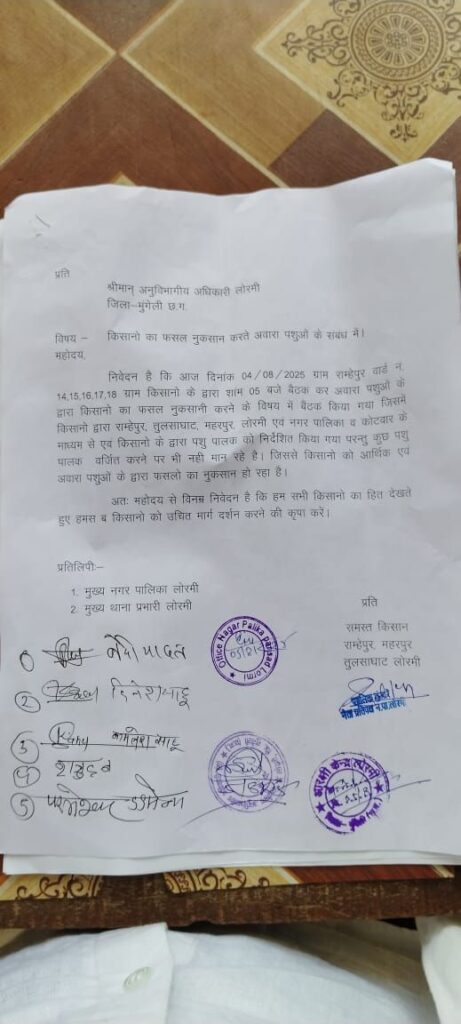 प्रति
श्रीमान् अनुविभागीय अधिकारी लोरमी
जिला–मुंगेली छ.ग.
विषय – किसानो का फसल नुकसान करते अवारा पशुओं के संबंध में।
महोदय,
निवेदन है कि आज दिनांक 04/08/2025 ग्राम राम्हेपुर वार्ड न.
14,15,16,17,18 ग्राम किसानो के द्वारा शांम 05 बजे बैठक कर अवारा पशुओं के
द्वारा किसानो का फसल नुकसानी करने के विषय में बैठक किया गया जिसमें
किसानो द्वारा राम्हेपुर, तुलसाघाट, महरपुर, लोरमी एवं नगर पालिका व कोटवार के
माध्यम से एवं किसानो के द्वारा पशु पालक को निर्देशित किया गया परन्तु कुछ पशु
पालक वर्जित करने पर भी नही मान रहे है। जिससे किसानो को आर्थिक एवं
अवारा पशुओं के द्वारा फसलो का नुकसान हो रहा है।
अतः महोदय से विनम्र निवेदन है कि हम सभी किसानो का हित देखते
हुए हमस ब किसानो को उचित मार्ग दर्शन करने की कृपा करें।
प्रतिलिपी:–
1. मुख्य नगर पालिका लोरमी
2. मुख्य थाना प्रभारी लोरमी
प्रति
समस्त किसान
राम्हेपुर, महरपुर
तुलसाघाट लोरमी
Office Nagar Palika parisad Lormi
1
2 दिनेश साहू
3
4
5